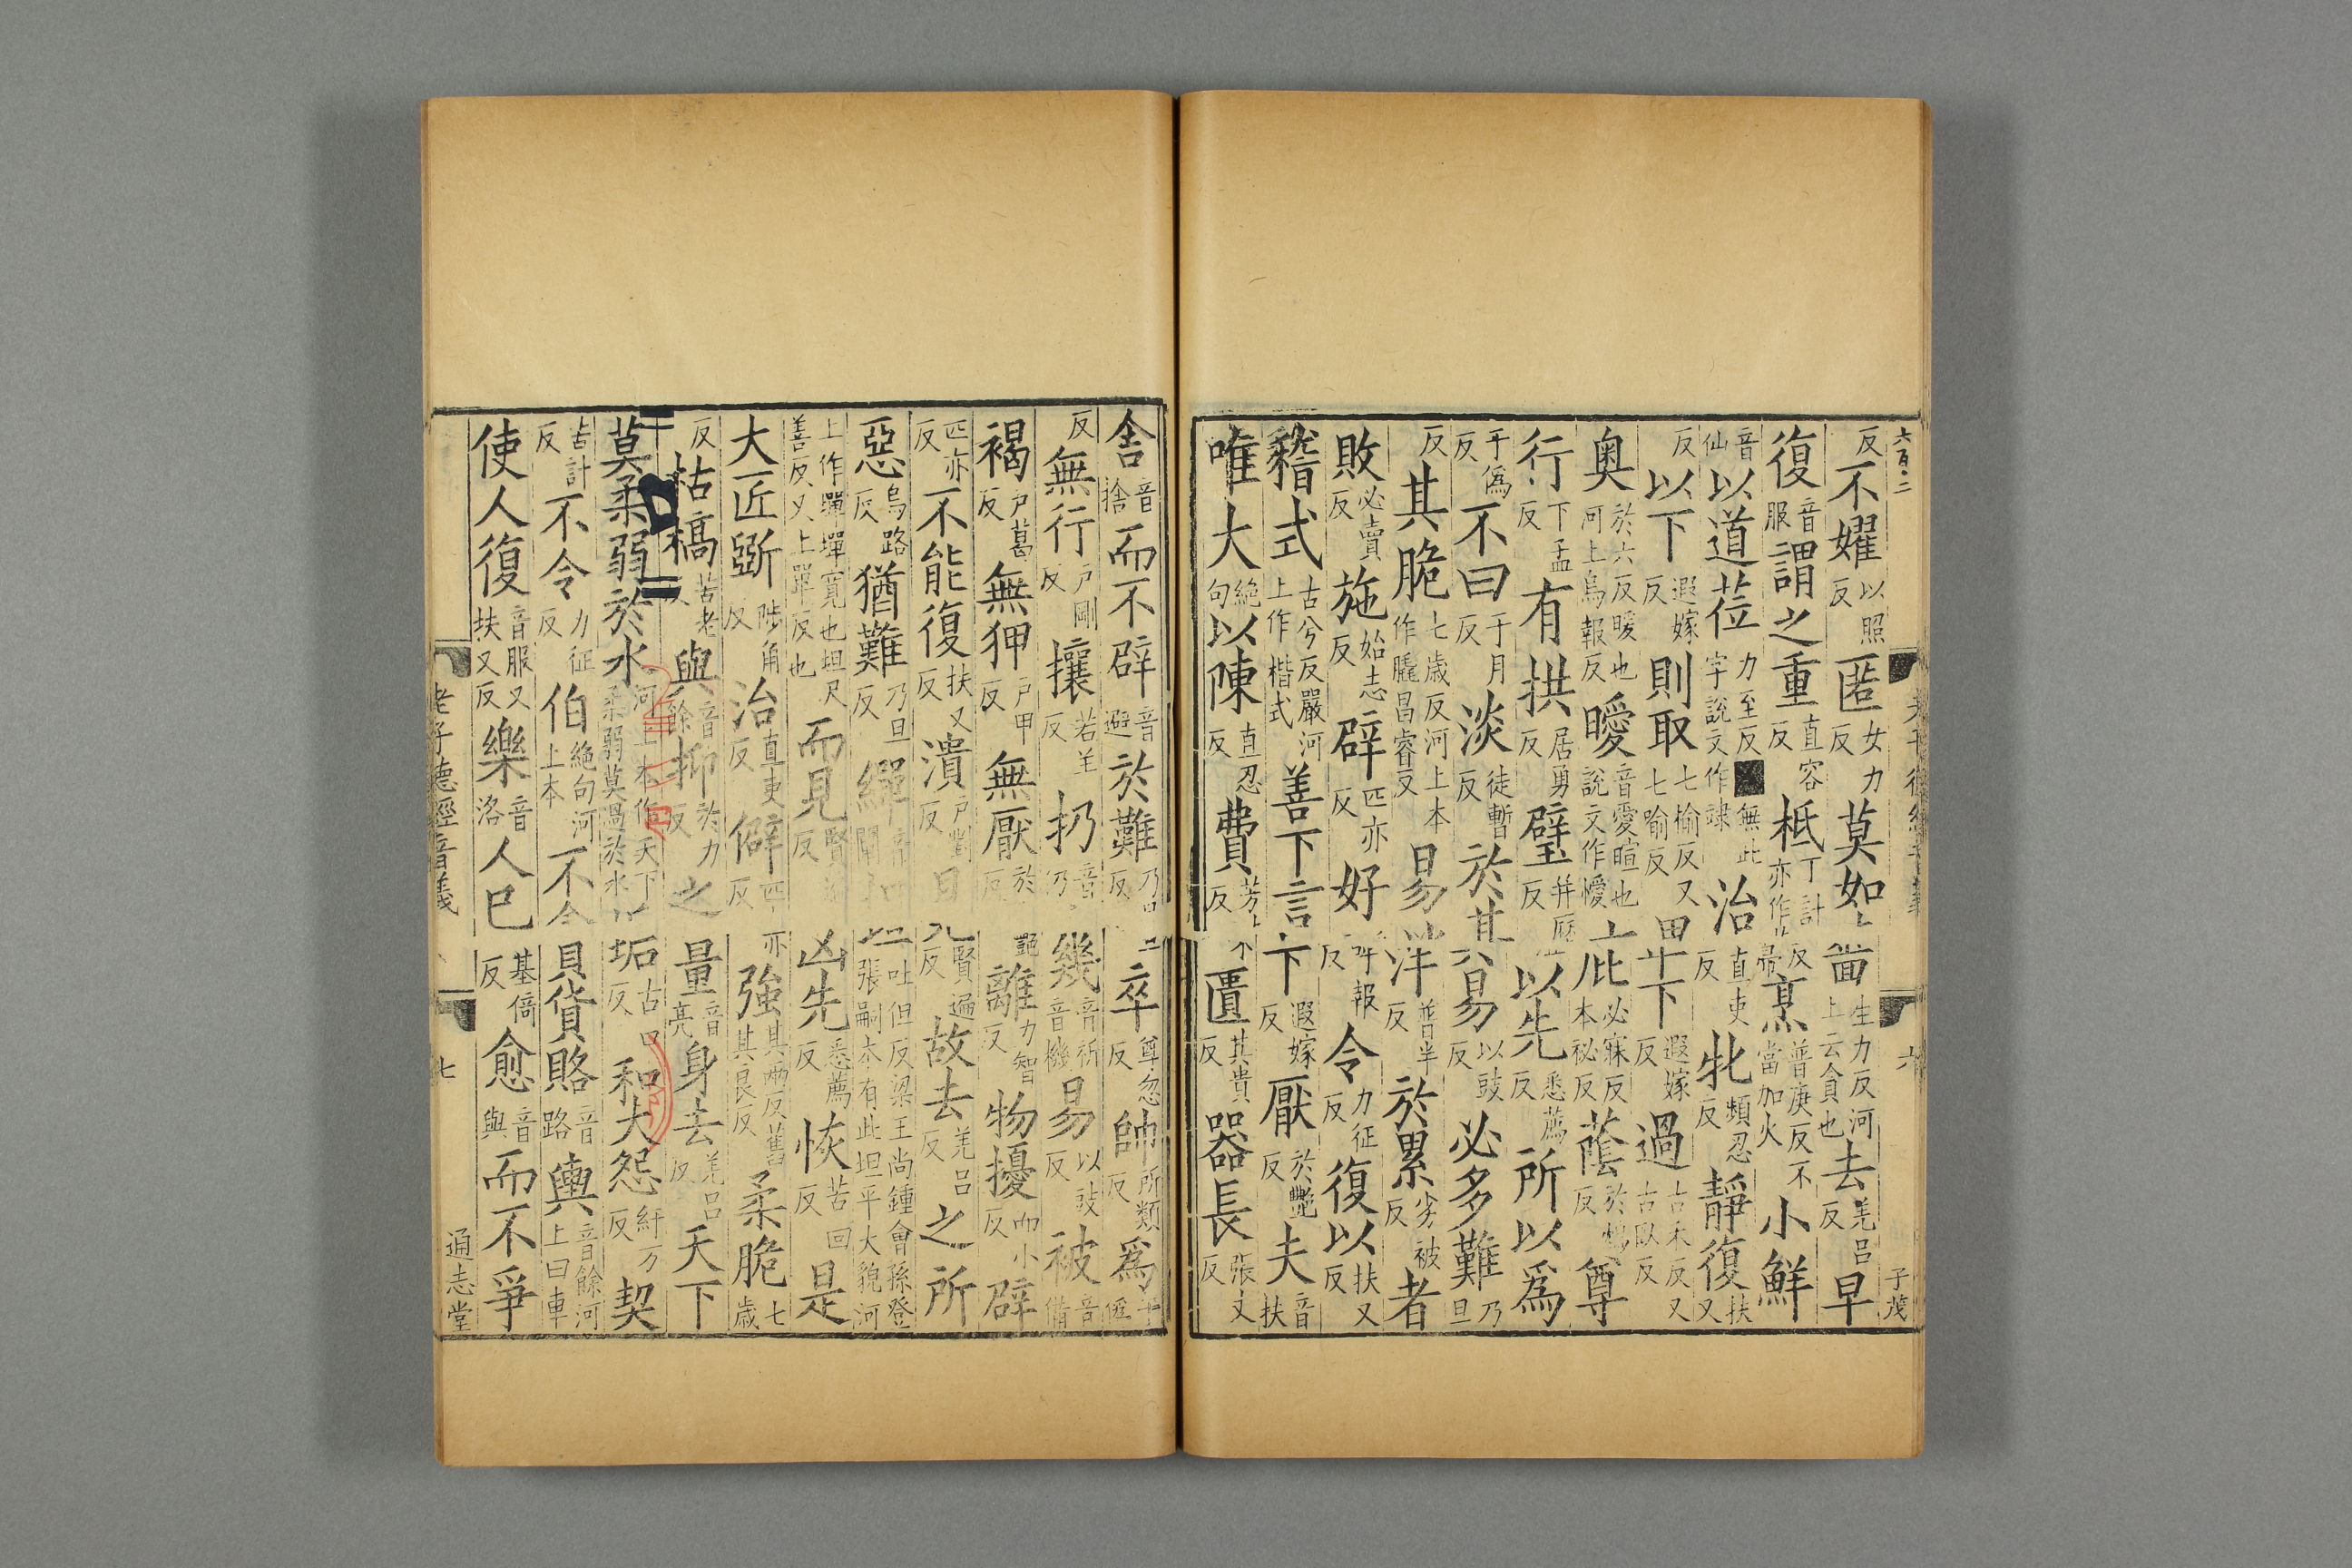 六百二
子茂
反不嬥以照反匿女力反莫如嗇生力反河上云貪也去羌呂反早
復音服謂之重直容反柢丁計反亦作蔕烹普庚反不當加火小鮮
音仙以道莅力至反無此字說文作䇐治直吏反牝頻忍反靜復扶又
反以下遐嫁反則取七榆反又七喻反下遐嫁反過古禾反又古臥反
奧於六反暖也河上烏報反曖音愛暄也說文作㤅庇必寐反本祕反蔭反尊
行下孟反有拱居勇反璧并歷反以先悉薦反所以爲
于僞反不曰于月反淡徒暫反於其易以豉反必多難乃旦
反其脆七歲反河上本作膬昌睿反易泮普半反於累劣被反者
敗必賣反施始志反辟匹亦反好呼報反令力征反復以扶又反
稽式古兮反嚴河上作楷式善下言下遐嫁反厭於豔反夫音扶
唯大絕句以陳直忍反費芳反匱其貴反器長張丈反
舍音捨而不辟音避於難乃旦反卒尊忽反帥所類反爲于僞
反無行戶剛反攘若羊反扔音仍幾音祈音機易以豉反被音備
褐戶葛反無狎戶甲反無厭於豔反離力智反物擾而小反辟
匹亦反不能復扶又反潰戶對反見賢遍反故去羌呂反之所
惡烏路反猶難乃旦反繟坦吐但反梁王尚鍾會孫登張嗣本有此坦平大貌河
上作墠墠寬也坦尺善反又上單反也而見賢遍反凶先悉薦反恢苦回反是
大匠斲陟角反治直吏反僻匹亦反強其兩反舊其良反柔脆七歲
反枯槁苦老反與音餘抑於力反之量音亮身去羌呂反天下
莫柔弱於水河上本作天下柔弱莫過於水垢古口反和大怨紆万反契
苦計反不令力征反伯絕句河上本貝貨賂音路輿音餘河上曰車
使人復音服又扶又反樂音洛人已基倚反愈音與而不爭
老子德經音義
七
通志堂